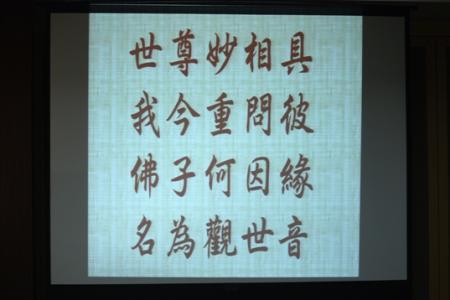 世尊妙相具
我今重問彼
佛子何因緣
名為觀世音